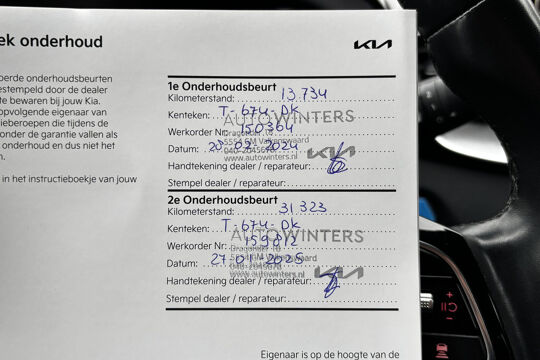 ek onderhoud
KIA
perde onderhoudsbeurten
estempeld door de dealer
te bewaren bij jouw Kia.
opvolgende eigenaar van
ieberoepen die tijdens de
onder de garantie vallen als
onderhoud en dus niet het
n.
in het instructieboekje van jouw
1e Onderhoudsbeurt
Kilometerstand: 13734
Kenteken: T-674-DK
AUTOWINTERS
Werkorder Nr: 150364
Dragonder 10
5554 GM Valkenswaard
Datum:
040-2045678
www.autowinters.nl
KIA
Handtekening dealer / reparateur:
Stempel dealer / reparateur:
2e Onderhoudsbeurt
Kilometerstand: 31323
Kenteken: T-674-DK
AUTOWINTERS
Werkorder Nr: 159812
Dragonder 10
5554 GM Valkenswaard
Datum: 27-01-2025
040-2045678
www.autowinters.nl
KIA
Handtekening dealer / reparateur:
Stempel dealer / reparateur:
Eigenaar is op de hoogte van de